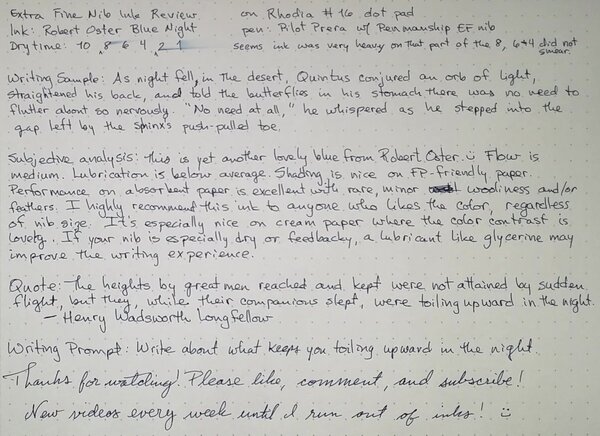 Extra Fine Nib Ink Review on Rhodia #16 dot pad
Ink: Robert Oster Blue Night pen: Pilot Prera w/ Penmanship EF nib
Dry time: 10 8 6 4 2 1 seems ink was very heavy on that part of the 8, 6+4 did not smear.
Writing Sample: As night fell, in the desert, Quintus conjured an orb of light,
straightened his back, and told the butterflies in his stomach there was no need to
flutter about so nervously. "No need at all," he whispered as he stepped into the
gap left by the sphinx's push-pulled toe.
Subjective analysis: This is yet another lovely blue from Robert Oster. :) Flow is
medium. Lubrication is below average. Shading is nice on FP-friendly paper.
Performance on absorbent paper is excellent with rare, minor wooliness and/or
feathers. I highly recommend this ink to anyone who likes the color, regardless
of nib size. It's especially nice on cream paper where the color contrast is
lovely. If your nib is especially dry or feedbacky, a lubricant like glycerine may
improve the writing experience.
Quote: The heights by great men reached and kept were not attained by sudden
flight, but they, while their companions slept, were toiling upward in the night.
— Henry Wadsworth Longfellow
Writing Prompt: Write about what keeps you toiling upward in the night.
Thanks for watching! Please like, comment, and subscribe!
New videos every week until I run out of inks! :)